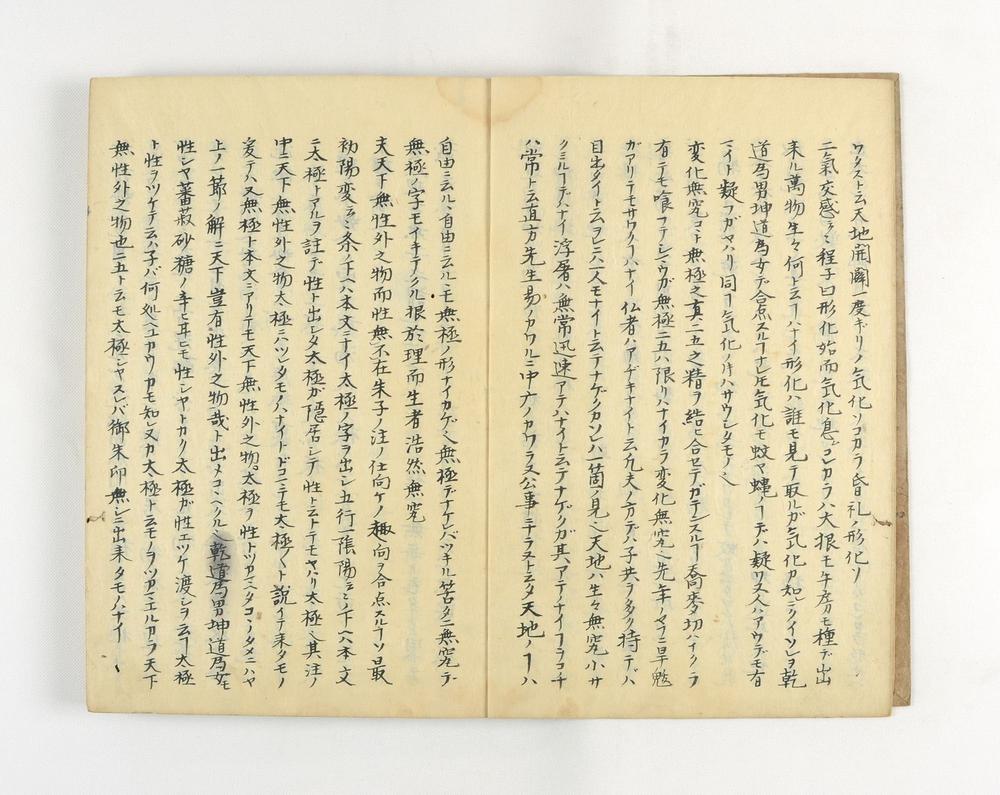 ワタスト云天地開闢一度ギリノ気化ソコカラ昏礼ノ形化ソ
二氣交感云々程子曰形化始而気化息ジコンカラハ大根モ午房モ種デ出
来ル萬物生々何ト云フハナイ形化ハ誰モ見テ取ルガ気化カ知ニクイソレヲ乾
道爲男坤道爲女デ合点スルヿナレ𪜈気化モ蚊ヤ蝇ノヿデハ疑ワヌ人ハアウデモ有
マイト疑フガヤハリ同ヿ気化ノ𪜈ハサウシタモノ也
変化無究コト無極之真二五之精ヲ結ヒ合セデガテンスルヿ喬麦切ハイクラ
有テモ喰フテシマウガ無極二五ハ限リハナイカラ変化無究也先年ノヤフニ旱魃
ガアリテモサワクヿハナイ仏者ハアゲキナイト云凡夫ノ方デハ子共ヲ多ク持テバ
目出タイト云ヲレニハ一人モナイト云テナゲクカソレハ一箇ノ見也天地ハ生々無究小サ
クミルヿデハナイ浮屠ハ無常迅速アテハナイト云テナゲクガ其アテノナイヿヲコチ
ハ常ト云直方先生易ノカワルニ中庸ノカワラヌ公事ニナラヌト云タ天地ノヿハ
自由ニ云ル、自由ニ云ル、モ無極ノ形ナイカゲ也無極デナケレバツキル筈タニ無究デ
無極ノ字モイキテクル根於理而生者浩然無究
夫天下無性外之物而性無不在朱子ノ注ノ仕向ケノ趣向ヲ合点スルヿソ最
初陽変云々ノ条ノ下ヘハ本文ニナイ太極ノ字ヲ出シ五行一陰陽云々ノ下ヘハ本文
ニ太極トアルヲ註デ性ト出シタ太極ガ隠居シテ性ト云トテモヤハリ太極也其注ノ
中ニ天下無性外之物太極ニハツレタモノハナイトドコニテモ太極〱ト説イテ来タモノ
爰テハ又無極ト本文ニアリテモ天下無性外之物太極ヲ性トツカミタコンタメニハヤ
上ノ一節ノ解ニ天下豈有性外之物哉ト出メコンヘクル也乾道爲男坤道爲女モ
性シヤ蕃菽砂糖ノ辛ヒ耳ヒモ性シヤトカク太極ガ性エツケ渡シヲ云ヿ太極
ト性ヲツケテ云ハ子バ何処ヘユカウカモ知レヌカ太極ト云モノヲツカマエルカラ天下
無性外之物也二五ト云モ太極シヤスレバ御朱印無シニ出来タモノハナイ〱